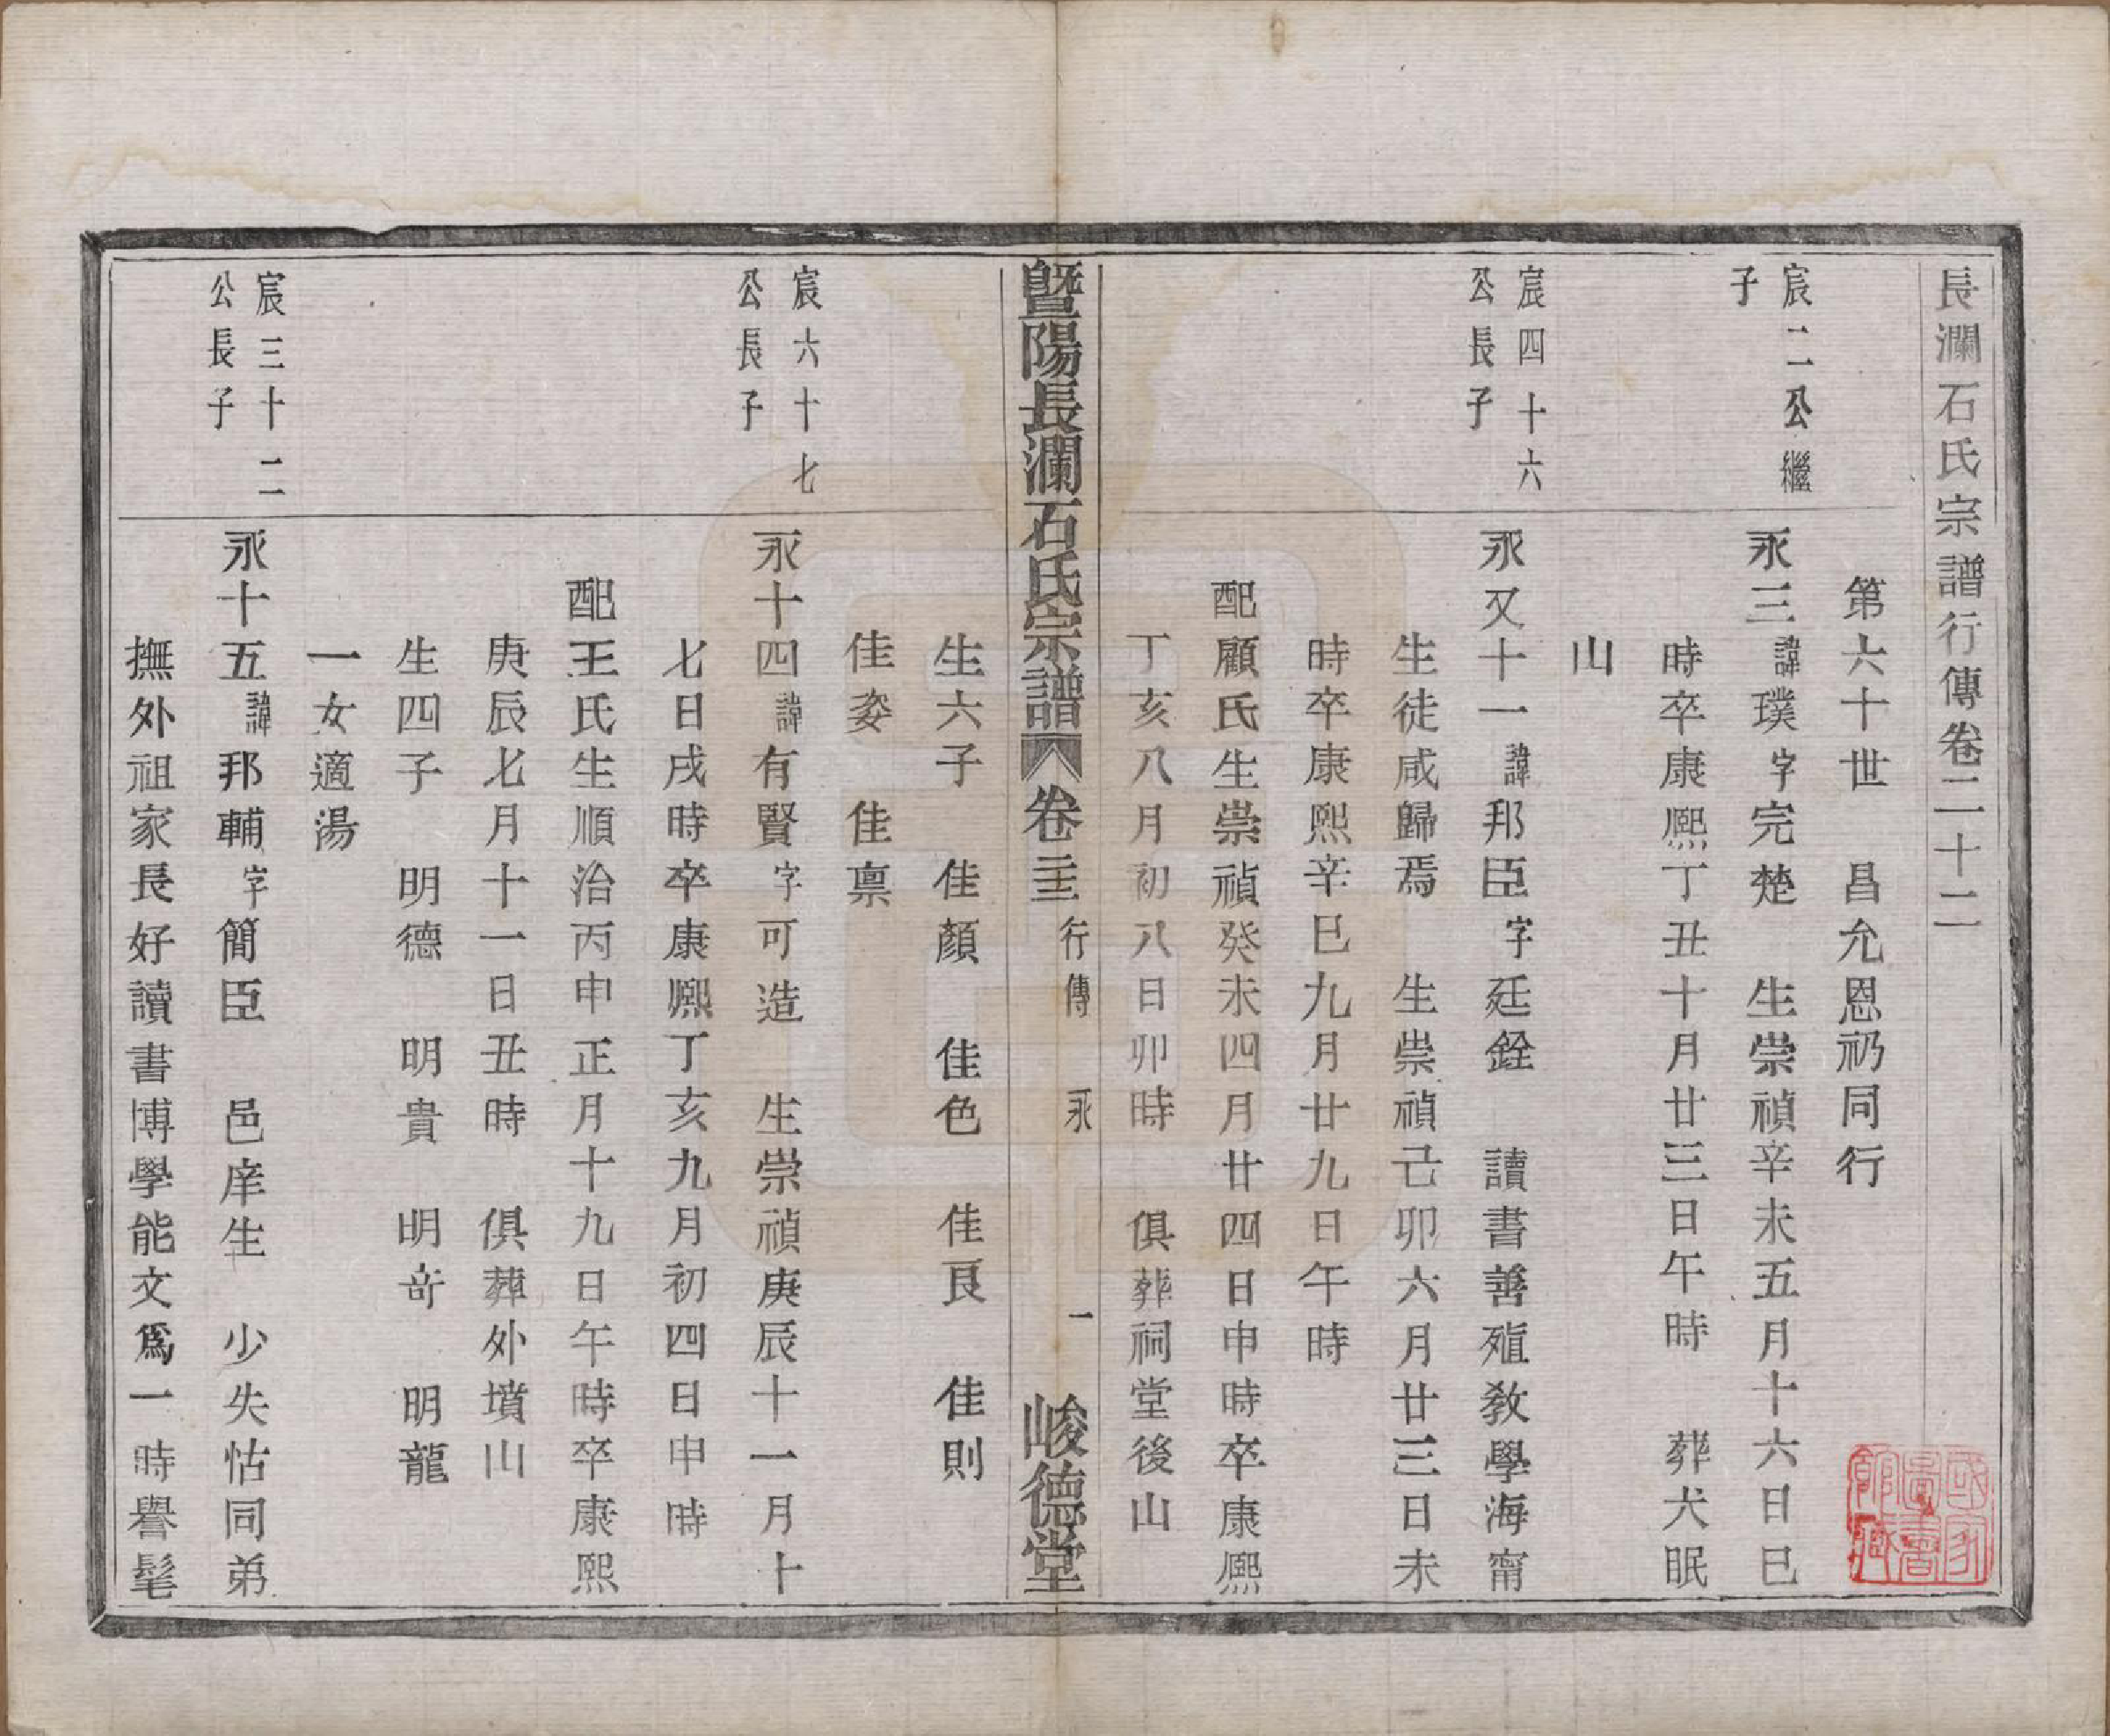 長瀾石氏宗譜行傳卷二十二
第六十世　昌允恩礽同行
宸二公繼
子
永三諱璞字完楚　生崇禎辛未五月十六日巳
時卒康熙丁丑十月廿三日午時　葬犬眠
山
宸四十六
公長子
永又十一諱邦臣字廷銓　讀書善殖教學海甯
生徒咸歸焉　生崇禎己卯六月廿三日未
時卒康熙辛巳九月廿九日午時
配顧氏生崇禎癸未四月廿四日申時卒康熙
丁亥八月初八日卯時　俱葬祠堂後山
暨陽長瀾石氏宗譜　卷二十二　行傳　永　一　峻德堂
生六子　佳顏　佳色　佳良　佳則
佳姿　佳禀
宸六十七
公長子
永十四諱有賢字可造　生崇禎庚辰十一月十
七日戌時卒康熙丁亥九月初四日申時
配王氏生順治丙申正月十九日午時卒康熙
庚辰七月十一日丑時　俱葬外墳山
生四子　明德　明貴　明奇　明龍
一女適湯
宸三十二
公長子
永十五諱邦輔字簡臣　邑庠生　少失怙同弟
撫外祖家長好讀書博學能文爲一時譽髦
國家圖書館藏